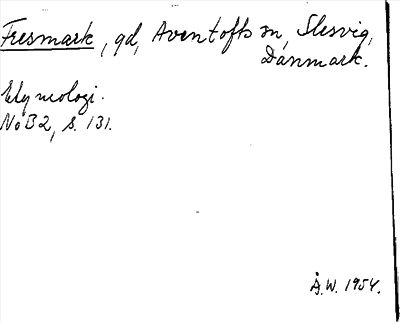 Fresmark, gd, Aventofts sn, Slesvig,
Danmark.
Etymologi.
NoB 2, s. 131.
Å.W. 1954.